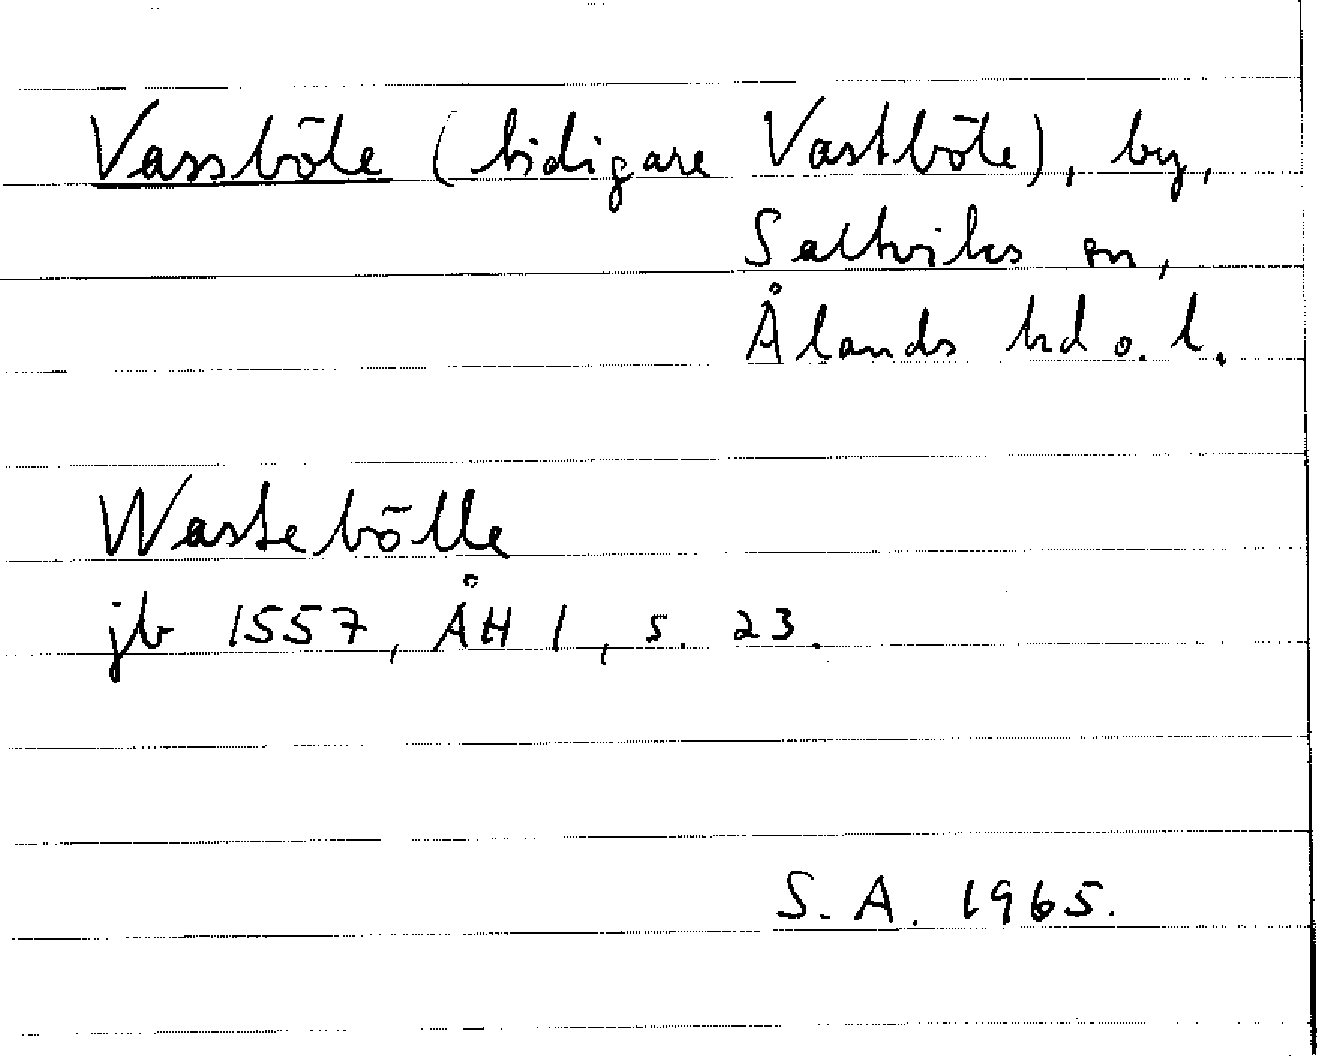 Vassböle (tidigare Vastböle), by,
Saltviks sn,
Ålands hd o. l.
Wastebölle
jb 1557, ÅH 1, s. 23.
S. A. 1965.